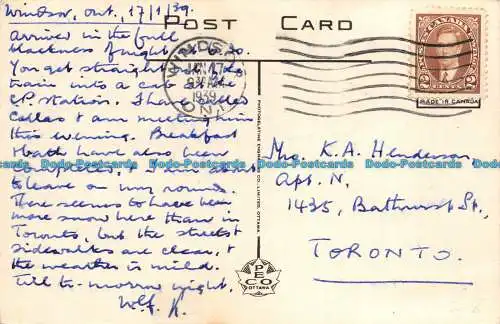 Windsor, Ont., 17/1/39.
POST CARD
Arrived in the full
blackness of night at 6.30.
You get straight off the
train into a cab at the
C.P. station. I have called
Callas & am meeting him
this evening. Breakfast
& bath have also been
completed, & I am about
to leave on my rounds.
There seems to have been
more snow here than in
Toronto, but the streets &
sidewalks are clear, &
the weather is mild.
Till to-morrow night,
WINDSOR
JAN 17
1939
ONT
CANADA
2 CENTS 2
MADE IN CANADA
PHOTOGELATINE ENGRAVING CO. LIMITED, OTTAWA
PECO
OTTAWA
Mrs. K. A. Henderson
Apt. N,
1435, Bathurst St.,
TORONTO.
Dodo-Postcards Dodo-Postcards Dodo-Postcards Dodo-Postcards